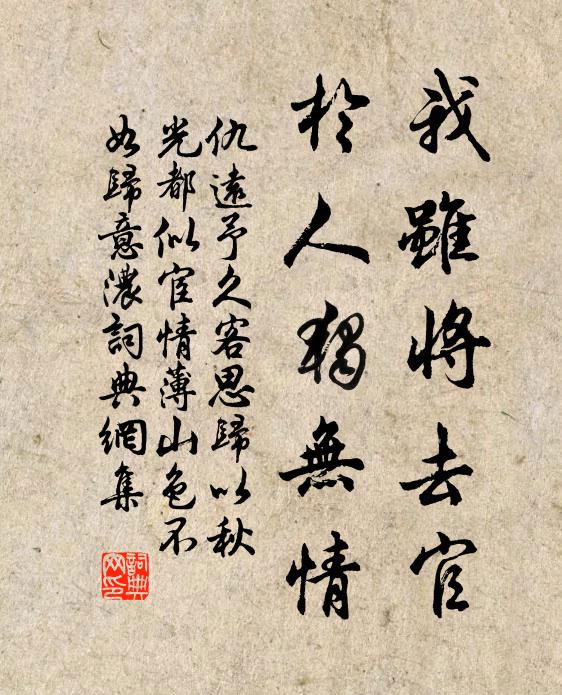 我雖將去官
於人獨無情
仇遠予久客思歸以秋
光都似宦情薄山色不
如歸意濃詞典網集
詞典
网印